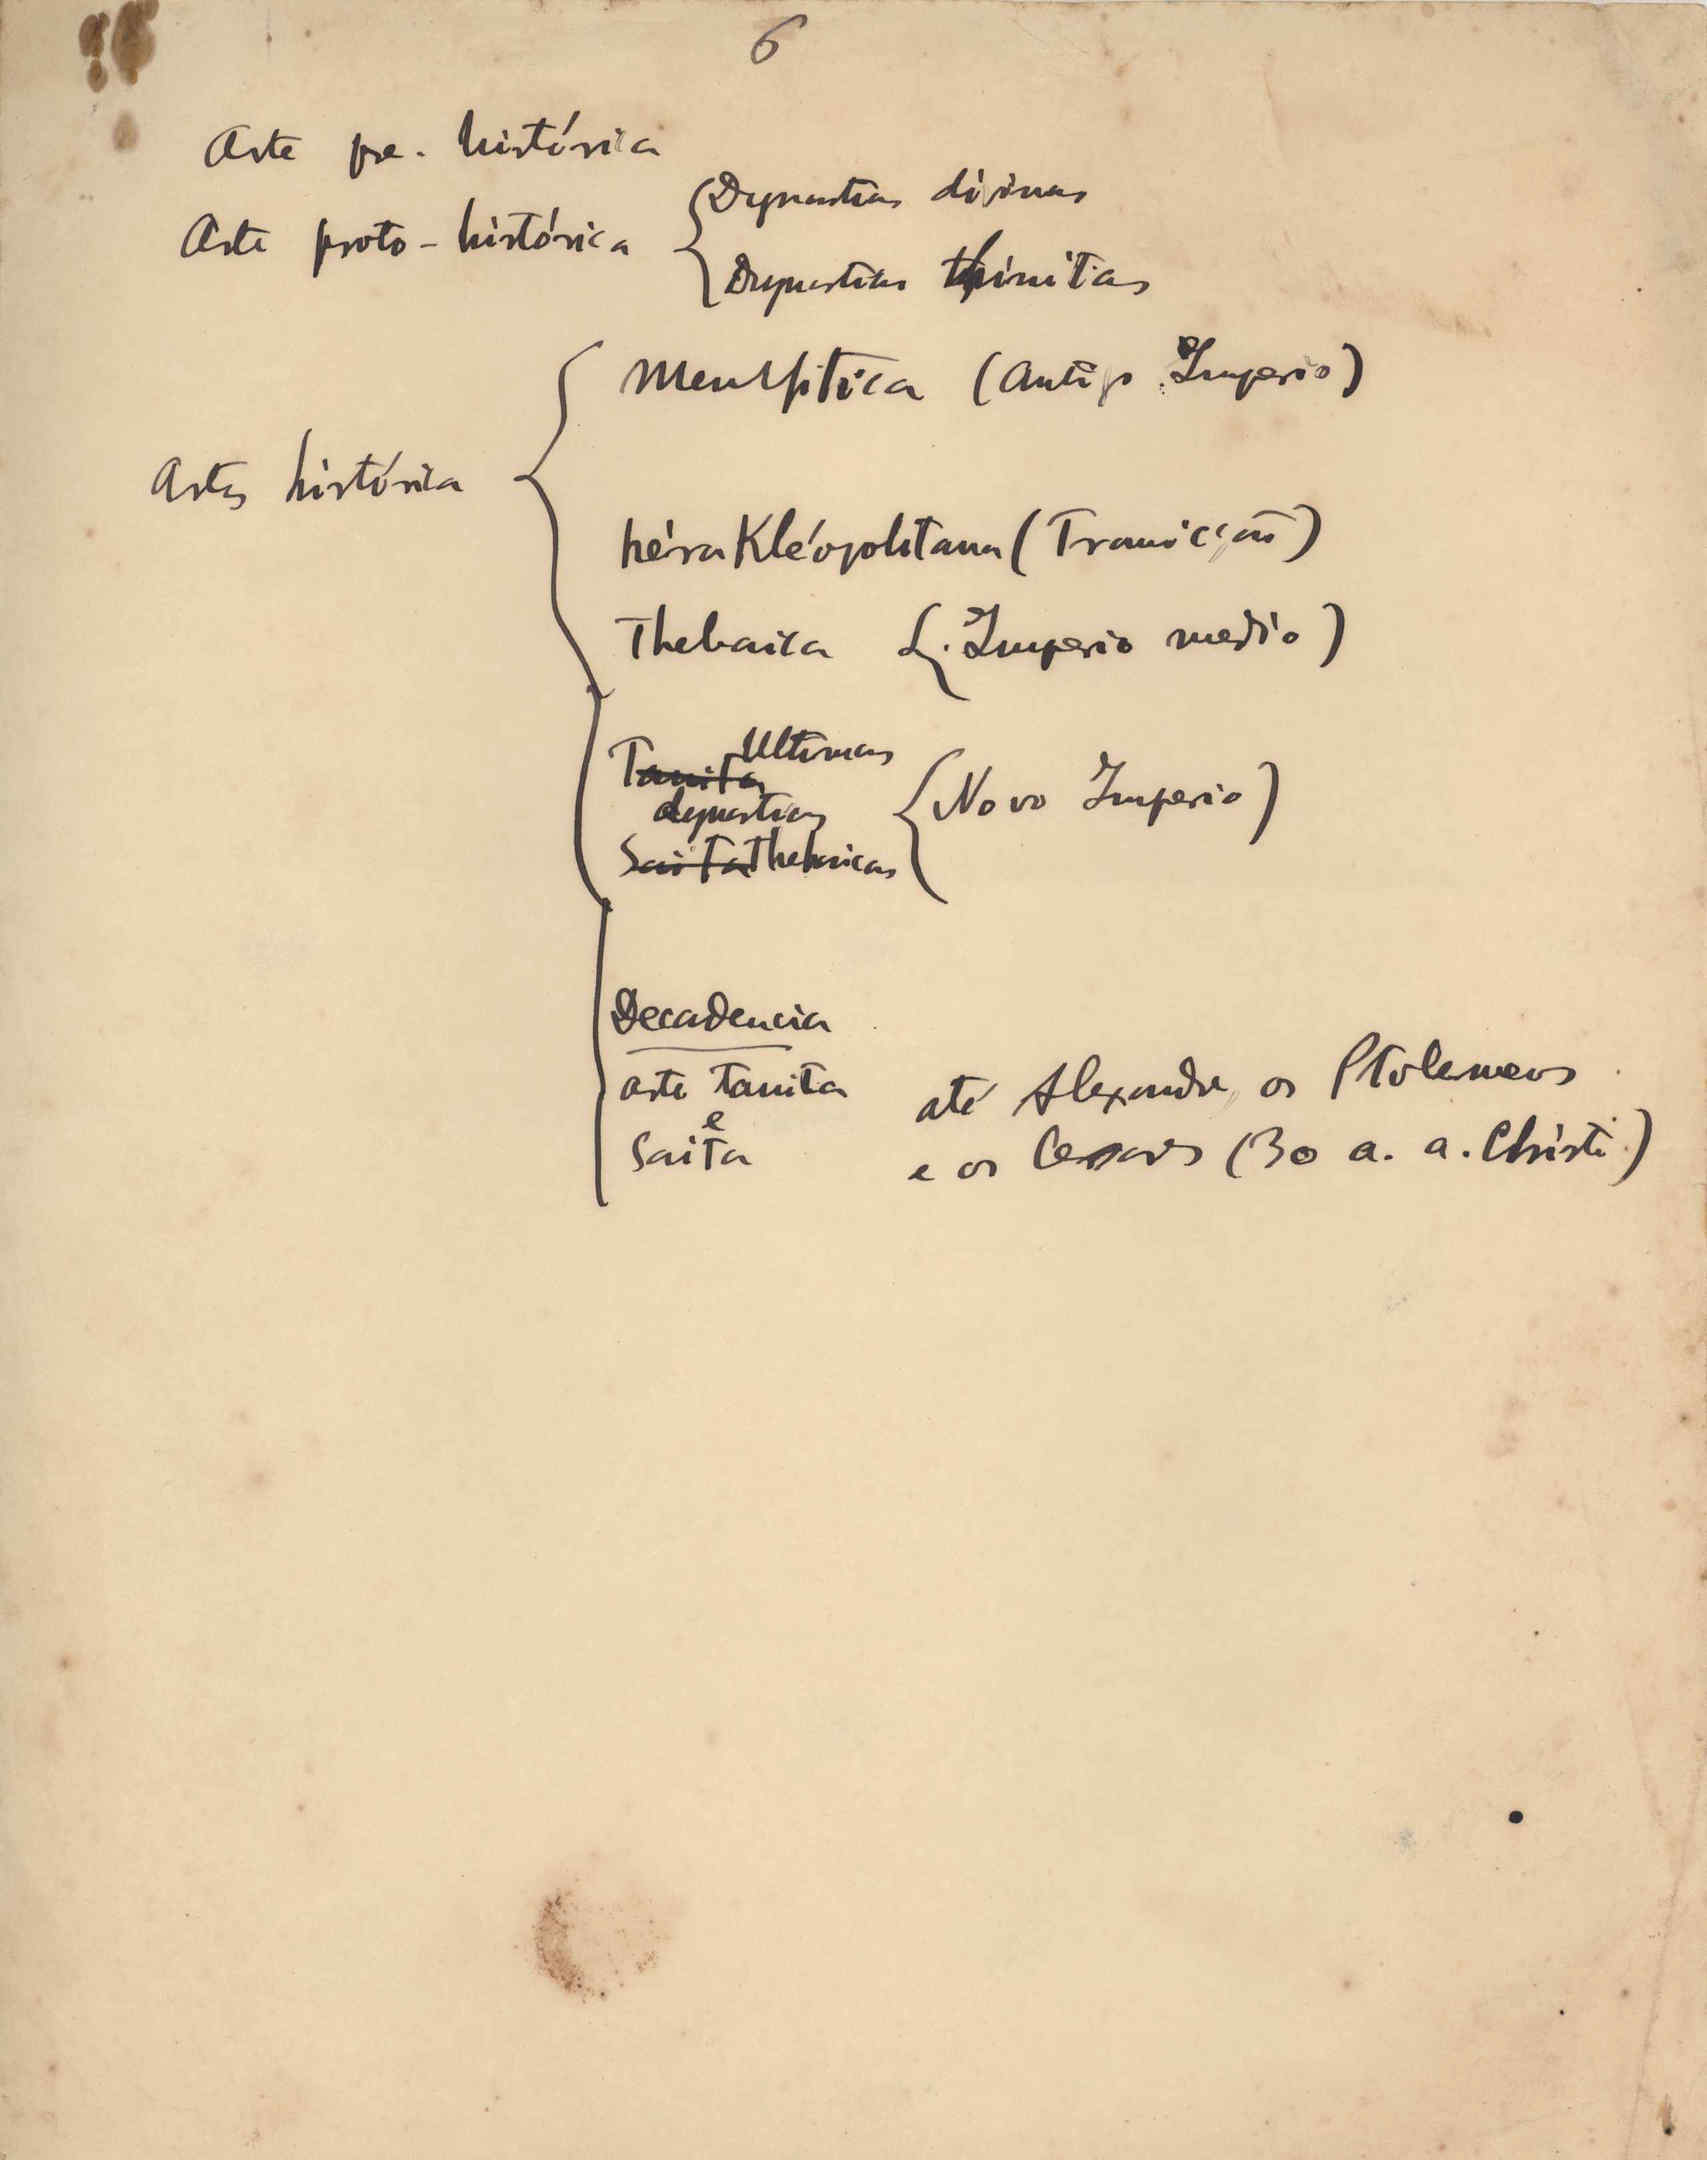 6
Arte pre-histórica
Arte proto-histórica { Dynastias divinas
Dynastias thinitas
Artes histórica
Memphitica (Antigo Imperio)
hérakléopolitana (Transicção)
Thebaica (Imperio medio)
Tanita Ultimas
dynastias { Novo Imperio)
Saita Thebaicas
Decadencia
arte tanita até Alexandre, os Ptolemeus
e
Saita e os Cesares (30 a. a. Christi)